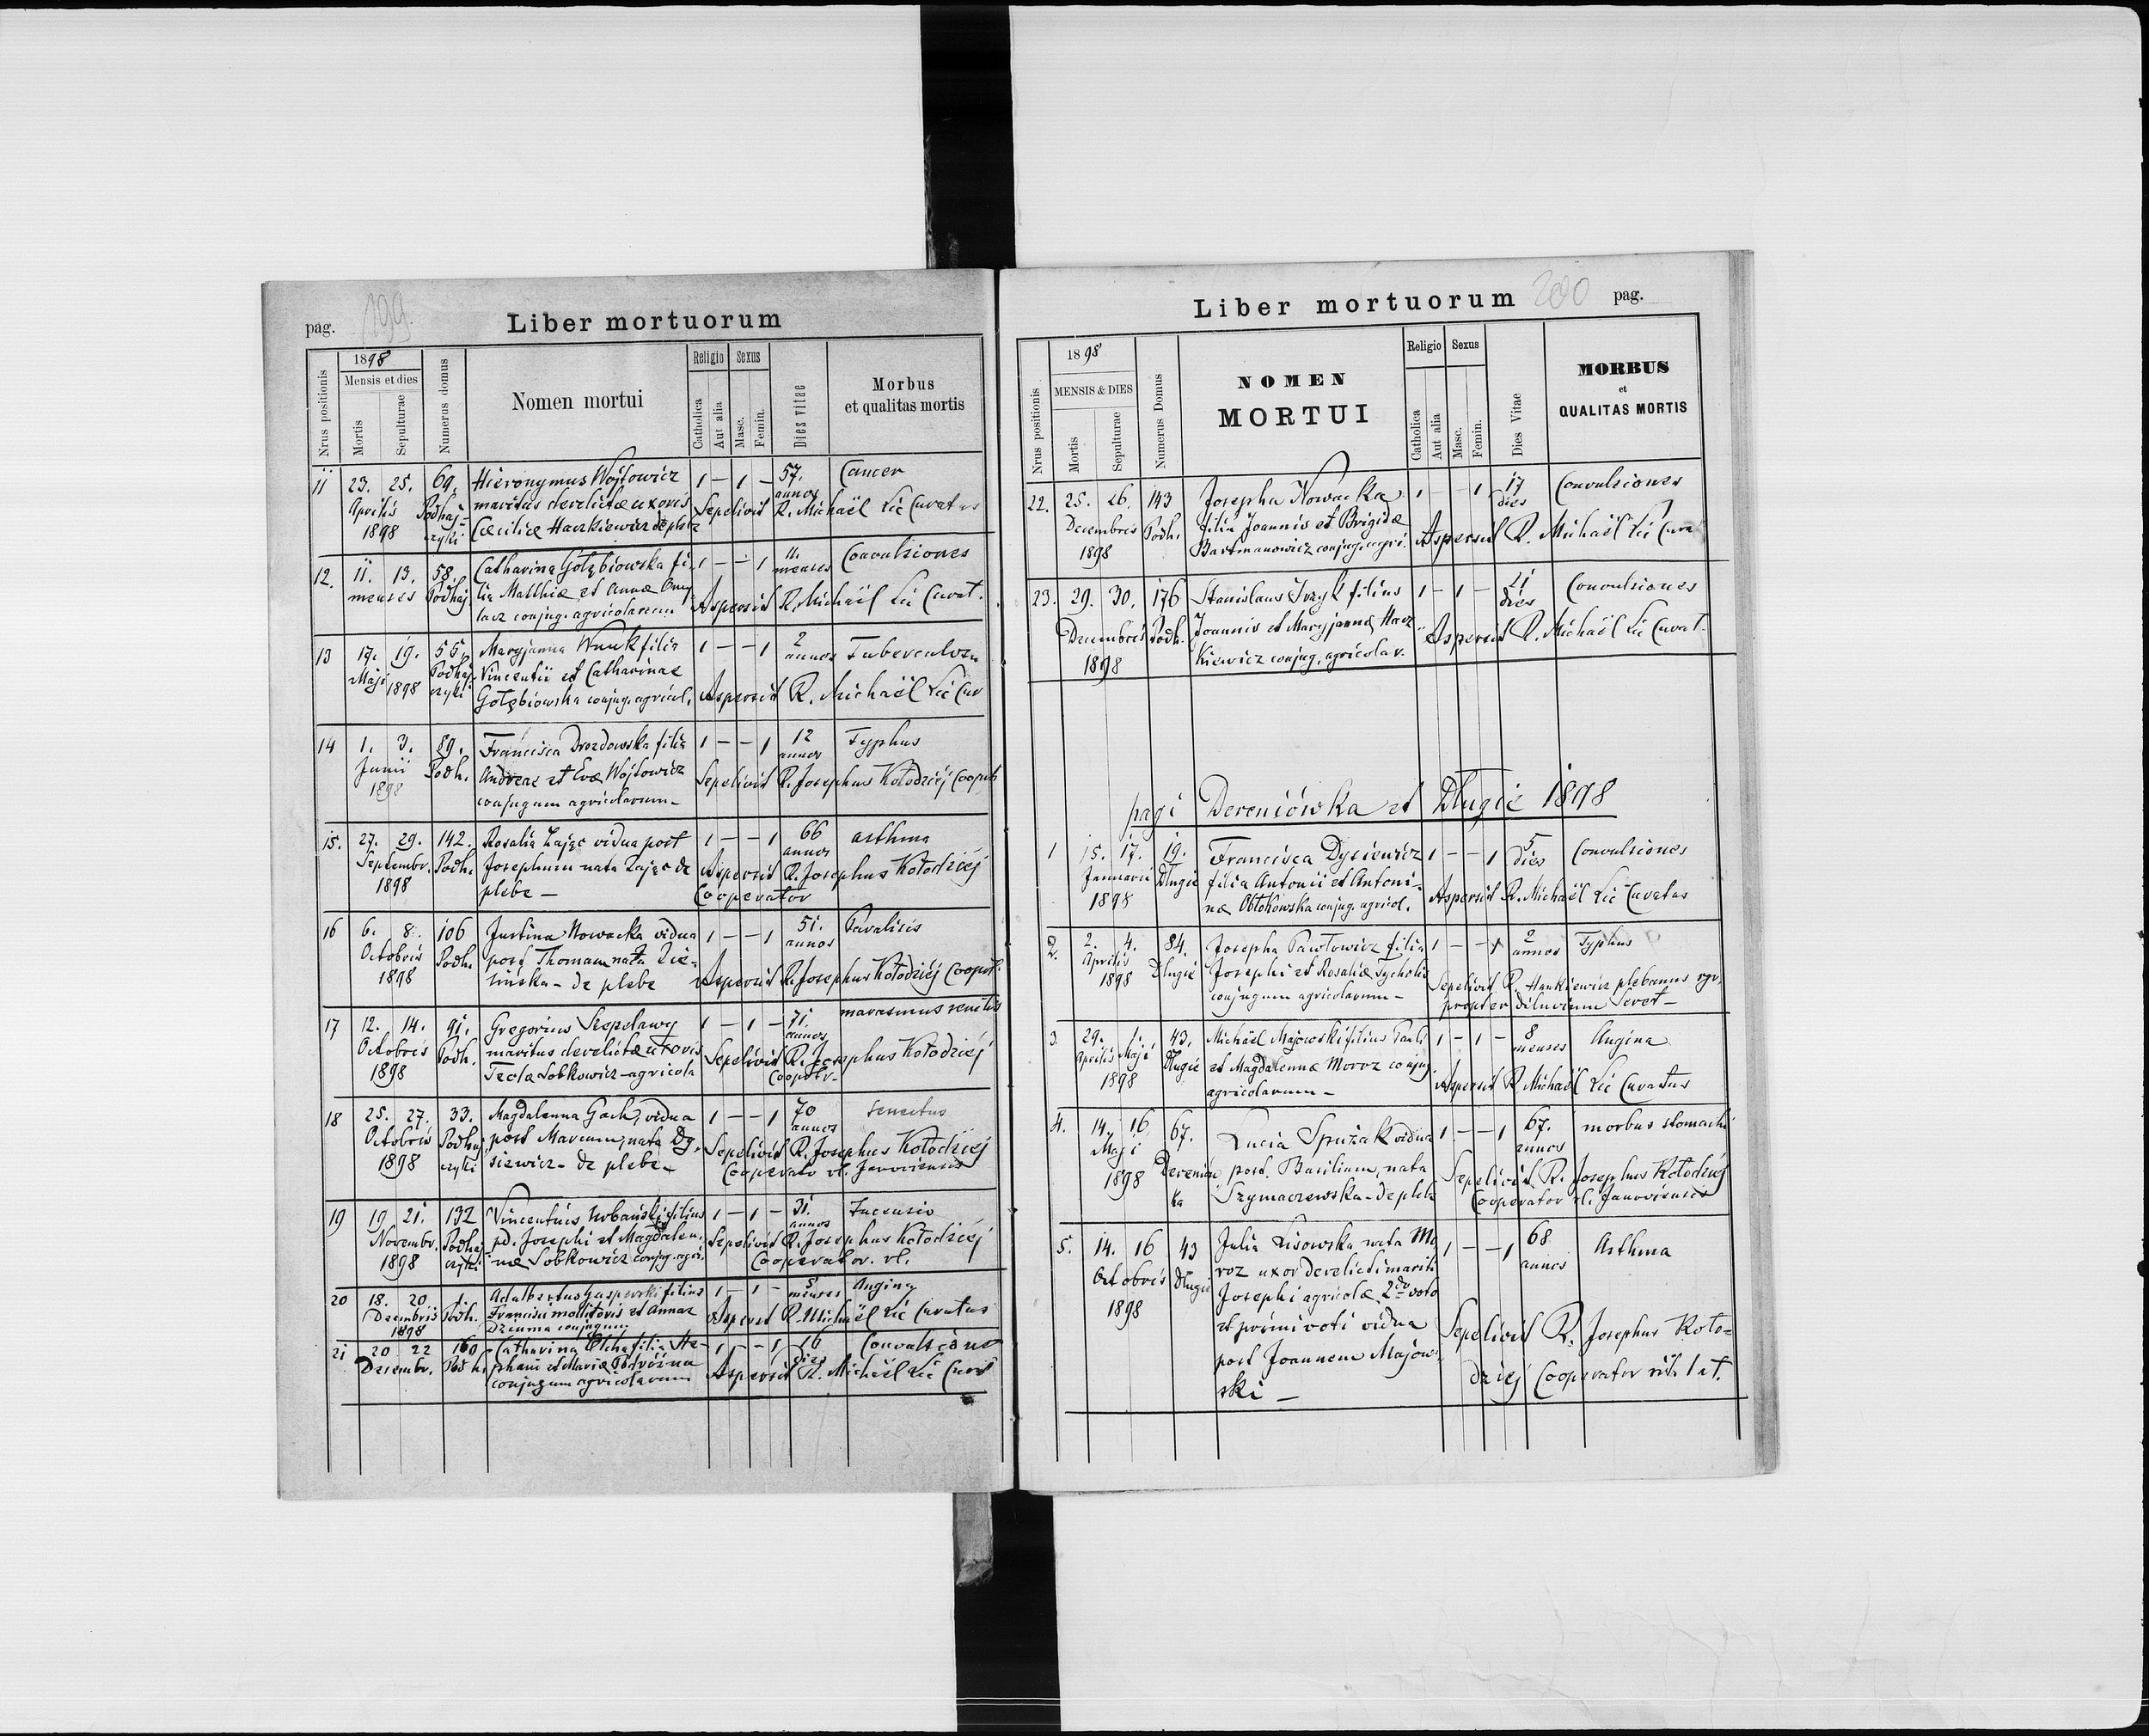 pag. 199.
Liber mortuorum
Nrus positionis
1898
Mensis et dies
Mortis
Sepulturae
Numerus domus
Nomen mortui
Religio
Catholica
Aut alia
Sexus
Masc.
Femin.
Dies vitae
Morbus
et qualitas mortis
11 23. 25. 69. Hieronymus Wojtowicz 1 – 1 – 57. Cancer
Aprilis Podhaj- maritus derelictae uxoris annos
1898 czyki Caeciliae Haczkiewicz de plebe Sepelivit R. Michaël Lic Curatus
12. 11. 13. 58. Catharina Gołębiowska fi- 1 – – 1 11. Convulsiones
menses Podhaj. lia Matthiae et Annae menses
conjug. agricolarum Aspersit R. Michaël Lic Curat.
13 17. 19. 55. Maryjanna Wnuk filia 1 – – 1 2 Tuberculosa
Maji 1898 Podhaj- Vincentii et Catharinae annos
czyki Gołębiowska conjug. agricol. Aspersit R. Michaël Lic Cur
14 1. 3. 89. Francisca Drozdowska filia 1 – – 1 12 Typhus
Junii Podh. Andreae et Evae Wojtowicz annos
1898 conjugum agricolarum – Sepelivit R. Josephus Kołodziéj Coopet
15. 27. 29. 142. Rosalia Zając vidua post 1 – – 1 66 asthma
Septembr. Podh. Josephum nata Zając de annos
1898 plebe – Aspersit R. Josephus Kołodziéj
Cooperator
16 6. 8. 106 Justina Nowacka vidua 1 – – 1 51. Paralisis
Octobris Podh. post Thomam nata Zie- annos
1898 lińska – de plebe Aspersit R. Josephus Kołodziéj Coopet.
17 12. 14. 91. Gregorius Szepelawy 1 – 1 – 71. marasmus senilis
Octobris Podh. maritus derelictae uxoris annos
1898 Teclae Sobkowicz – agricola Sepelivit R. Josephus Kołodziéj
Coopetr.
18 25. 27. 33. Magdalenna Gach, vidua 1 – – 1 70 senectus
Octobris Podhaj- post Marcum, nata Dy- annos
1898 czyki siewicz – de plebe – Sepelivit R. Josephus Kołodziéj
Cooperato rl. Janoviensis
19 19 21. 132 Vincentius Urbański filius 1 – 1 – 31. Incensio
Novembr. Podhaj- pd. Josephi et Magdalen- annos
1898 czyki nae Sobkowicz conjug. agri. Sepelivit R. Josephus Kołodziéj
Cooperator. rl.
20 18. 20. 1. Adalbertus Gasperski filius 1 – 1 – 5 Angina
Decembris Podh. Francisci molitoris et Annae menses
1898 Dziuma conjugum Aspersit R. Michaël Lic Curatus
21 20 22 160 Catharina Olcha filia Ste- 1 – – 1 16 Convulsiones
Decembr. Podh. phani et Mariae Podróżna dies
conjugum agricolarum Aspersit R. Michaël Lic Curat
Liber mortuorum 200 pag.
Nrus positionis
1898
MENSIS & DIES
Mortis
Sepulturae
Numerus Domus
NOMEN
MORTUI
Religio
Catholica
Aut alia
Sexus
Masc.
Femin.
Dies Vitae
MORBUS
et
QUALITAS MORTIS
22. 25. 26. 143 Josepha Nowacka 1 – – 1 17 Convulsiones
Decembris Podh. filia Joannis et Brigidae dies
1898 Bartmanowicz conjug. agri. Aspersit R. Michaël Lic Cura
23. 29. 30. 176 Stanislaus Irzyk filius 1 – 1 – 21 Convulsiones
Decembris Podh. Joannis et Maryjannae Hacz- dies
1898 kiewicz conjug. agricolar. Aspersit R. Michaël Lic Curat.
pagi Dereniówka et Długie 1898
1 15. 17. 19. Francisca Dysiewicz 1 – – 1 5 Convulsiones
Januarii Długie filia Antonii et Antoni- dies
1898 nae Obłokowska conjug. agricol. Aspersit R. Michaël Lic Curatus
2. 2. 4. 84. Josepha Pawłowicz filia 1 – – 1 2 Typhus
Aprilis Długie Josephi et Rosaliae annos
1898 conjugum agricolarum – Sepelivit R. Hankiewicz plebanus rgr.
propter diluvium Seret –
3. 29. 1. 43. Michaël Majowski filius Pauli 1 – 1 – 8 Angina
Aprilis Maji Długie et Magdalennae Moroz conjug. menses
1898 agricolarum – Aspersit R. Michaël Lic Curatus
4. 14. 16 67. Lucia Spużak vidua 1 – – 1 67. morbus stomachi
Maji Dereniów- post. Basilium, nata annos
1898 ka Szymaczewska – de plebe Sepelivit R. Josephus Kołodziéj
Cooperator rl. Janoviensis
5. 14. 16 43 Julia Lisowska nata Mo- 1 – – 1 68 Asthma
Octobris Długie roz uxor derelicti mariti annos
1898 Josephi agricolae 2do voto
et primi voti vidua Sepelivit R. Josephus Koło-
post Joannem Majow- dziéj Cooperator rit. lat.
ski –